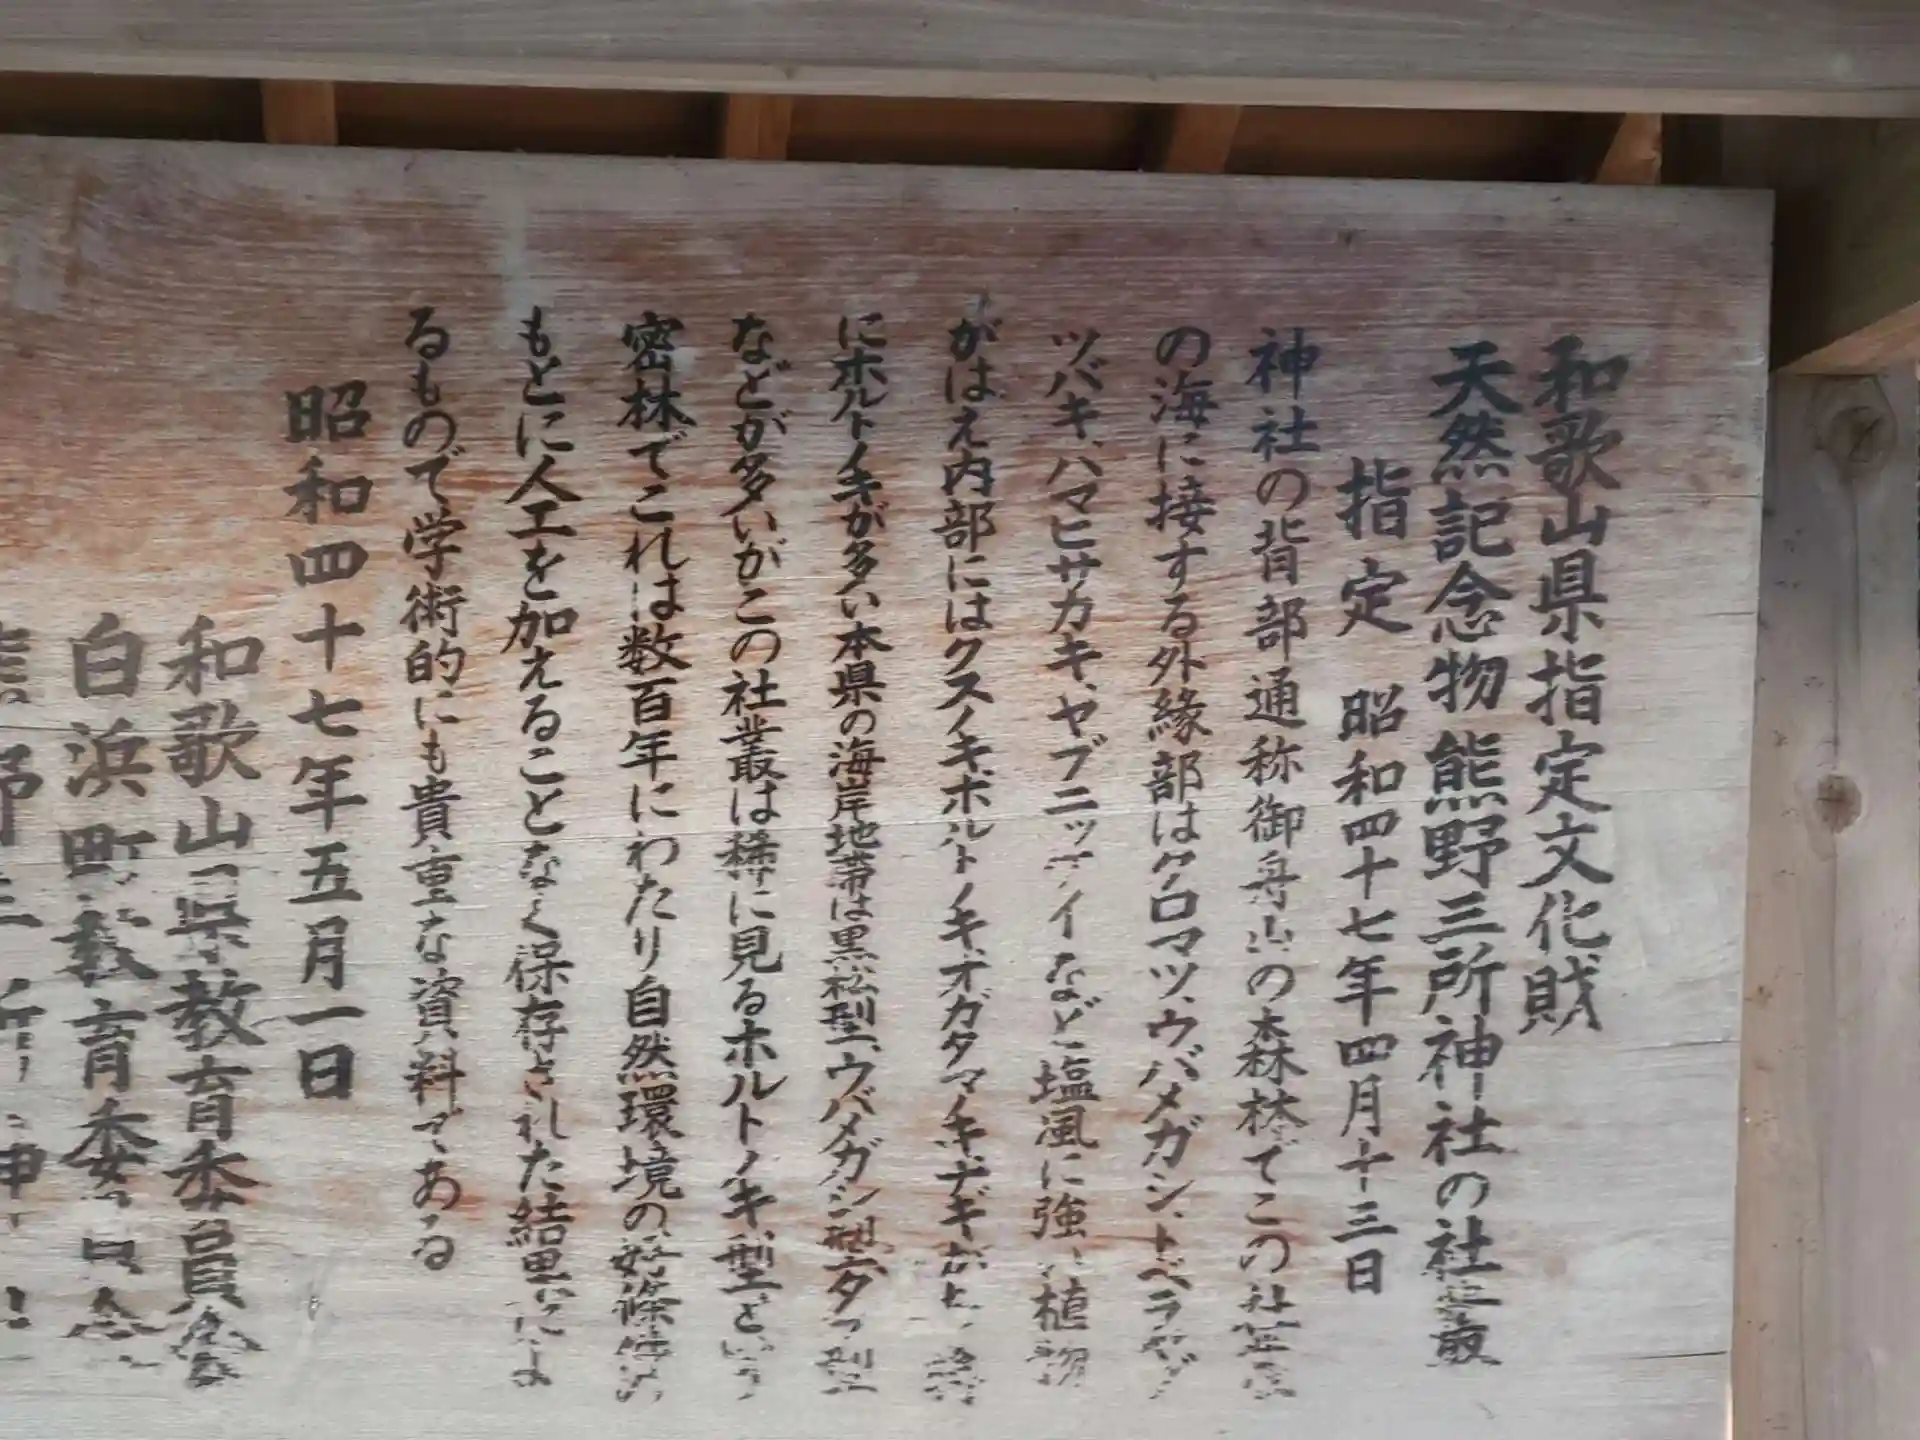 和歌山県指定文化財
天然記念物 熊野三所神社の社叢
指定 昭和四十七年四月十三日
神社の背部通称御舟山の森林でこの社叢
の海に接する外縁部はクロマツ、ウバメガシ、トベラ、ヤブ
ツバキ、ハマヒサカキ、ヤブニッケイなど塩風に強い植物
がはえ内部にはクスノキ、ホルトノキ、オガタマノキ、ナギ
にホルトノキが多い本県の海岸地帯は黒松型、ウバメガシ型、タブ型
などが多いがこの社叢は稀に見るホルトノキ型という
密林でこれは数百年にわたり自然環境の
もとに人工を加えることなく保存された結果によ
るもので学術的にも貴重な資料である
昭和四十七年五月一日
和歌山県教育委員会
白浜町教育委員会